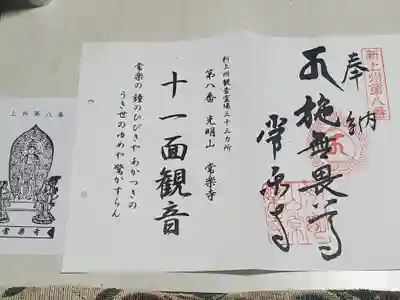 新上州第八番
奉納
施無畏尊
常楽寺
新上州観音霊場三十三カ所
第八番 光明山 常楽寺
十一面観音
常楽の鐘のひびきやあかつきの
うき世のゆめや驚かすらん
上州第八番
常楽寺